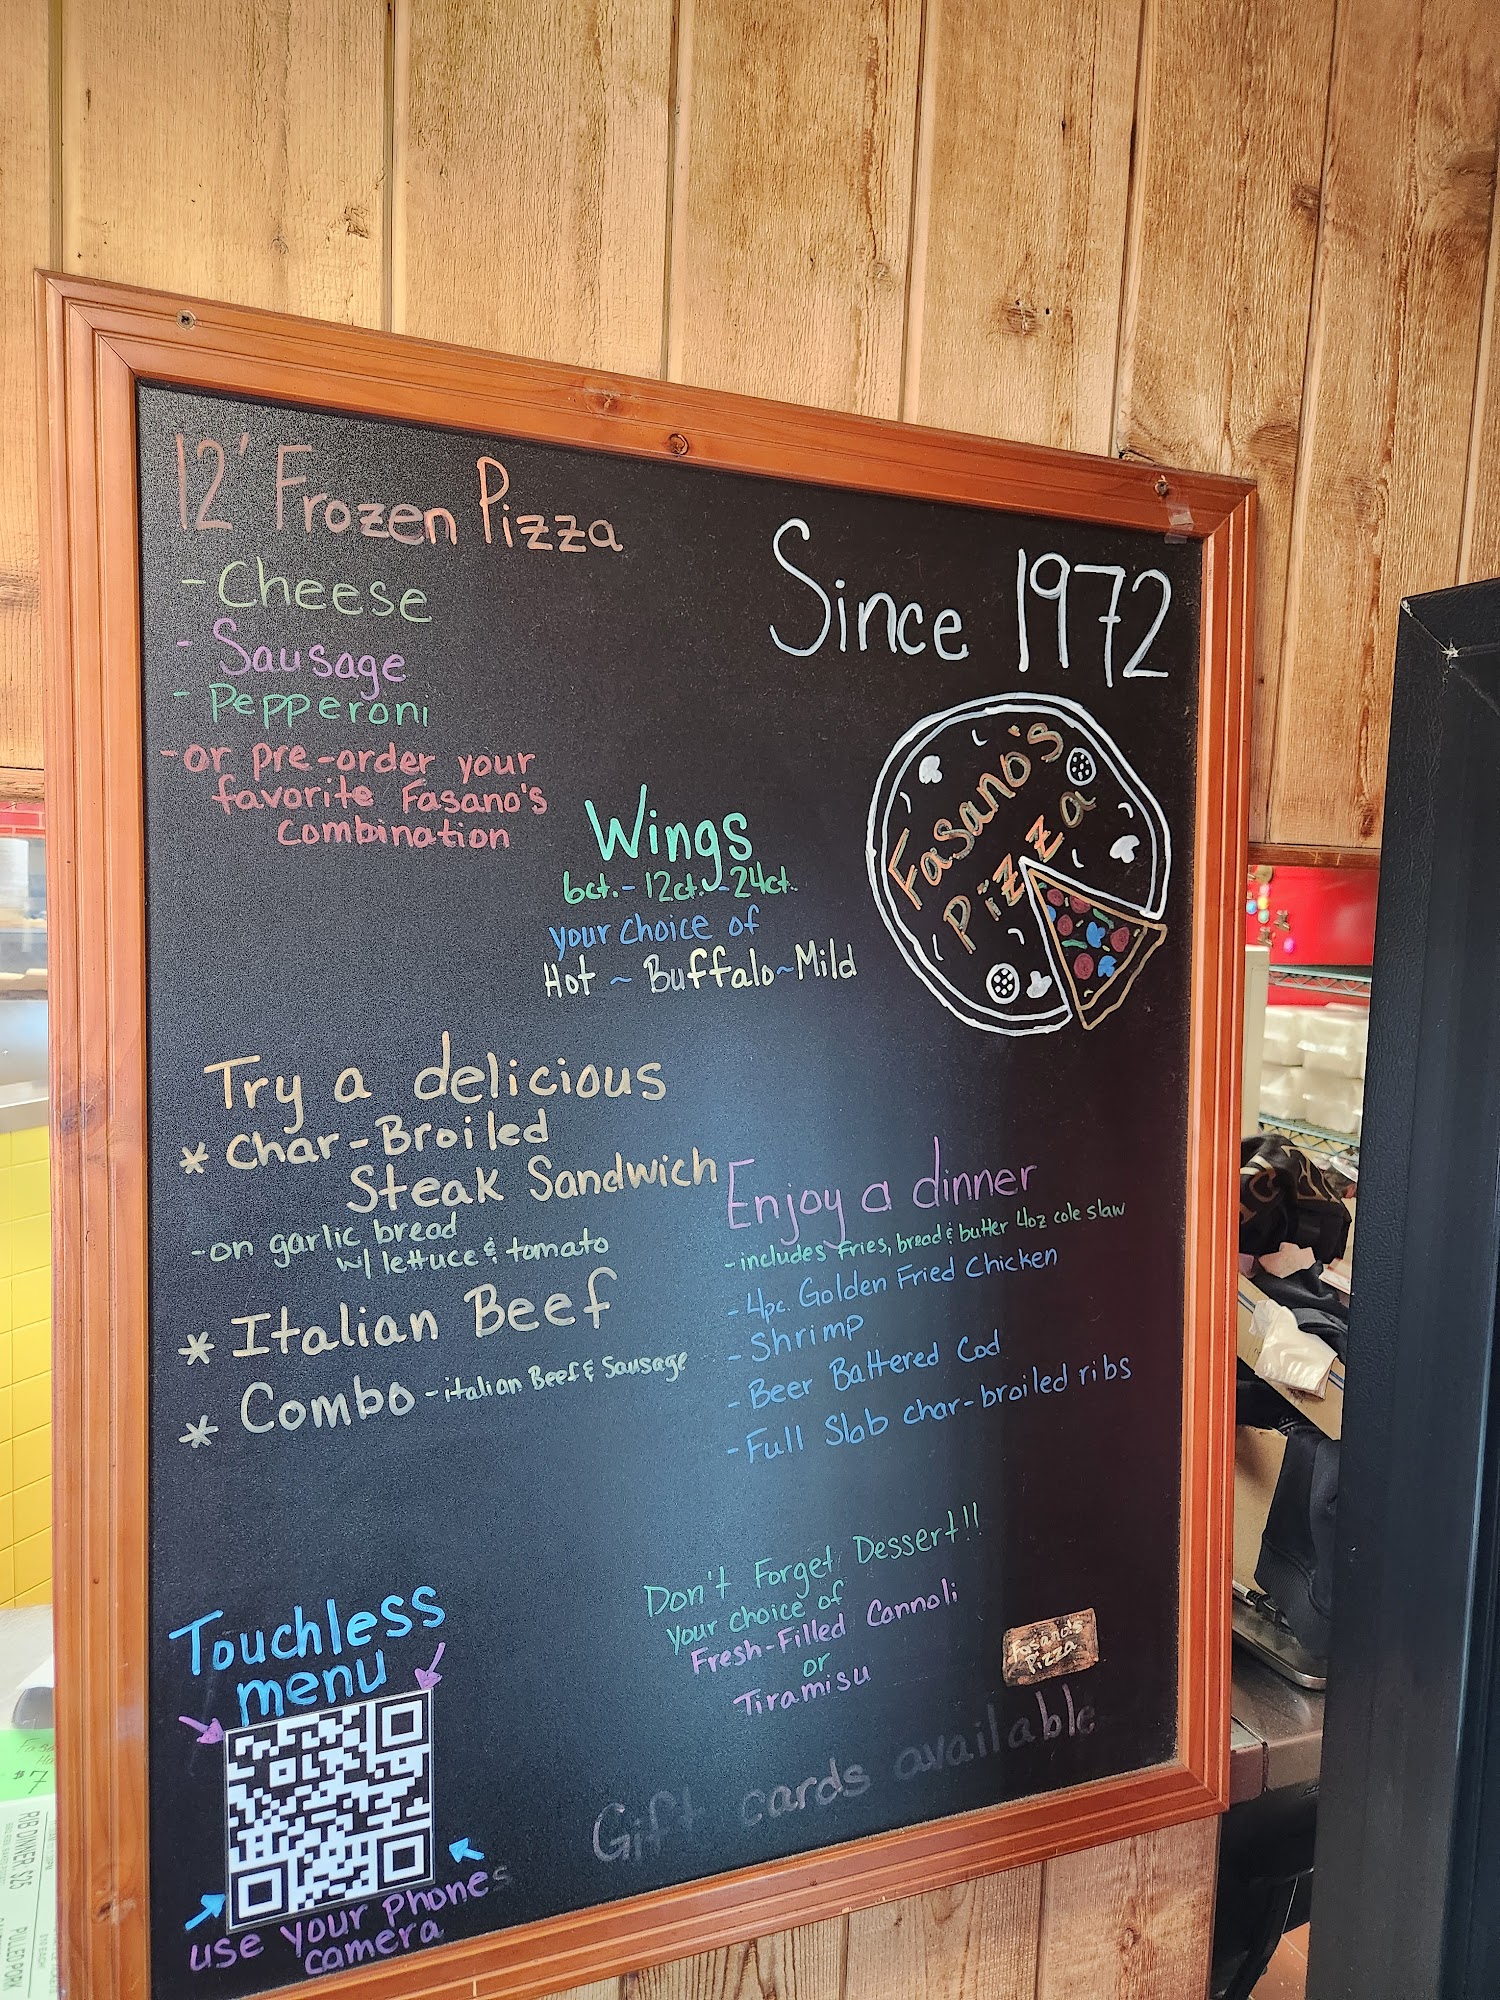 12' Frozen Pizza
- Cheese
- Sausage
- Pepperoni
- or pre-order your
favorite Fasano's
combination
Since 1972
Fasano's
Pizza
Wings
6ct. - 12ct. - 24ct.
your choice of
Hot ~ Buffalo ~ Mild
Try a delicious
* Char-Broiled
Steak Sandwich
- on garlic bread
w/ lettuce & tomato
* Italian Beef
* Combo - italian Beef & Sausage
Enjoy a dinner
- includes fries, bread & butter 4oz cole slaw
- 4pc. Golden Fried Chicken
- Shrimp
- Beer Battered Cod
- Full Slab char-broiled ribs
Don't Forget Dessert!!
your choice of
Fresh-Filled Cannoli
or
Tiramisu
Fasano's
Pizza
Gift cards available
Touchless
menu
use your phones
camera
$7
RIB DINNER $25
PULLED PORK